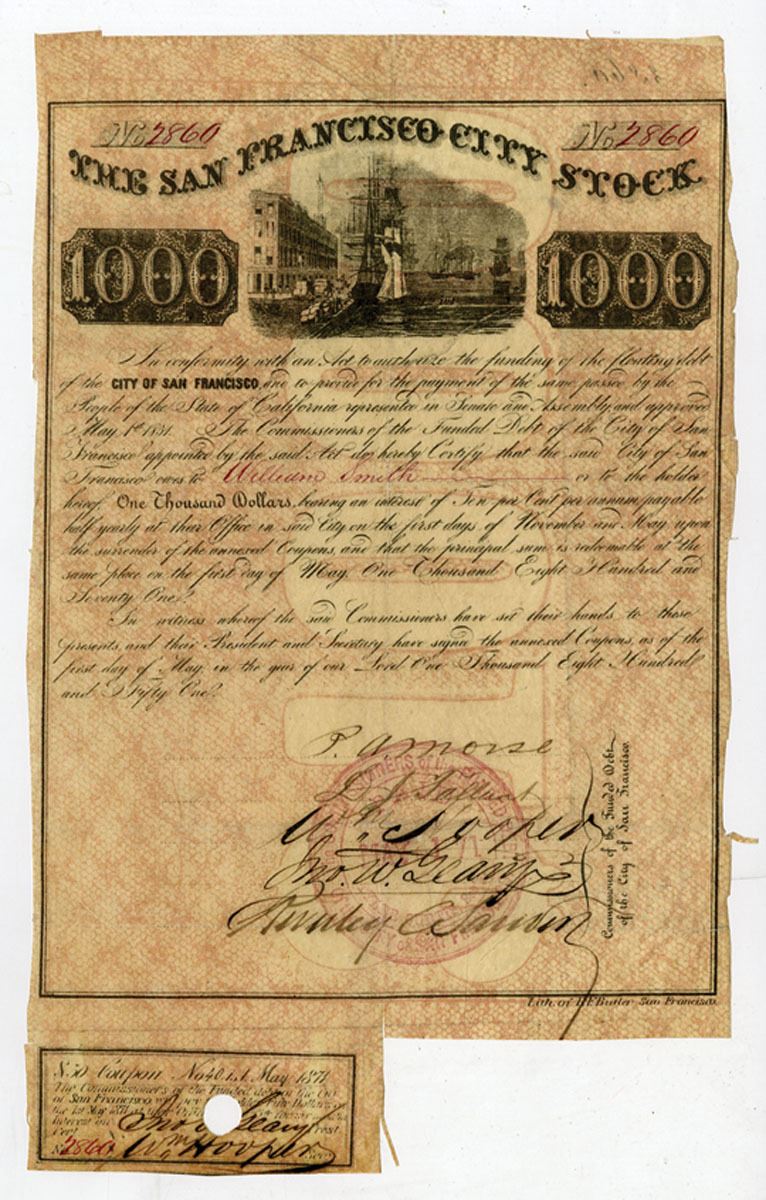 No 2860
No 2860
THE SAN FRANCISCO CITY STOCK
1000
1000
In conformity with an Act to authorize the funding of the floating debt
of the CITY OF SAN FRANCISCO, and to provide for the payment of the same passed by the
People of the State of California represented in Senate and Assembly, and approved
May 1st 1851. The Commissioners of the Funded Debt of the City of San
Francisco appointed by the said Act do hereby Certify that the said City of San
Francisco owes to William Smith or to the holder
hereof One Thousand Dollars, bearing an interest of Ten per Cent per annum, payable
half yearly at their Office in said City on the first days of November and May, upon
the surrender of the annexed Coupons, and that the principal sum is redeemable at the
same place on the first day of May, One Thousand Eight Hundred and
Seventy One.
In witness whereof the said Commissioners have set their hands to these
presents, and their President and Secretary have signed the annexed Coupons, as of the
first day of May, in the year of our Lord One Thousand Eight Hundred
and Fifty One.
P. A. Morse
D. J. Tallant
Wm Hooper
Jno. W. Geary
Commissioners of the Funded Debt
of the City of San Francisco.
Lith. of B.F. Butler San Francisco
$50 Coupon No 40 1st May 1871
The Commissioners of the Funded debt of the City
of San Francisco, will pay Dollars
the 1st May 1871 at their
Interest on
Jno W Geary Prest
No 2860 Wm Hooper Secy